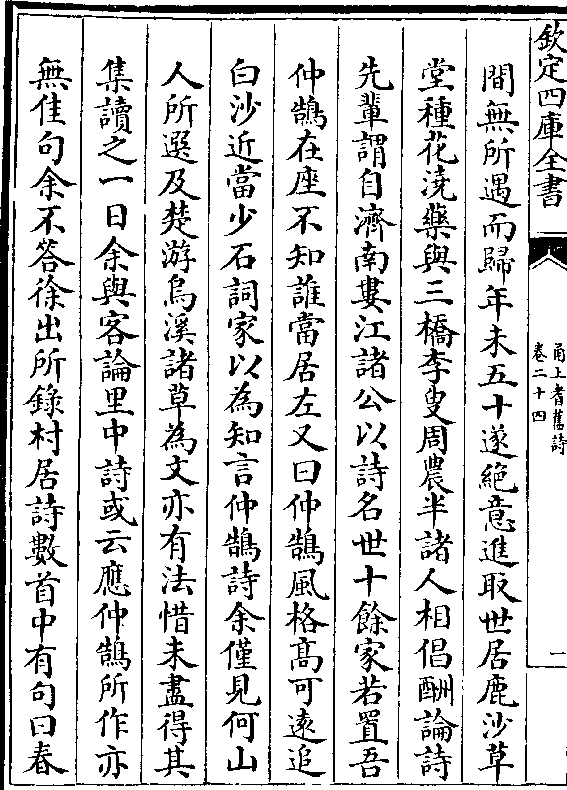 欽定四庫全書
甬上耆舊詩
卷二十四
一
間無所遇而歸年未五十遂絶意進取世居鹿沙草
堂種花澆藥與三橋李叟周農半諸人相倡酬論詩
先輩謂自濟南婁江諸公以詩名世十餘家若置吾
仲鵠在座不知誰當居左又曰仲鵠風格髙可遠追
白沙近當少石詞家以為知言仲鵠詩余僅見何山
人所選及楚游烏溪諸草為文亦有法惜未盡得其
集讀之一日余與客論里中詩或云應仲鵠所作亦
無佳句余不答徐出所錄村居詩數首中有句曰春